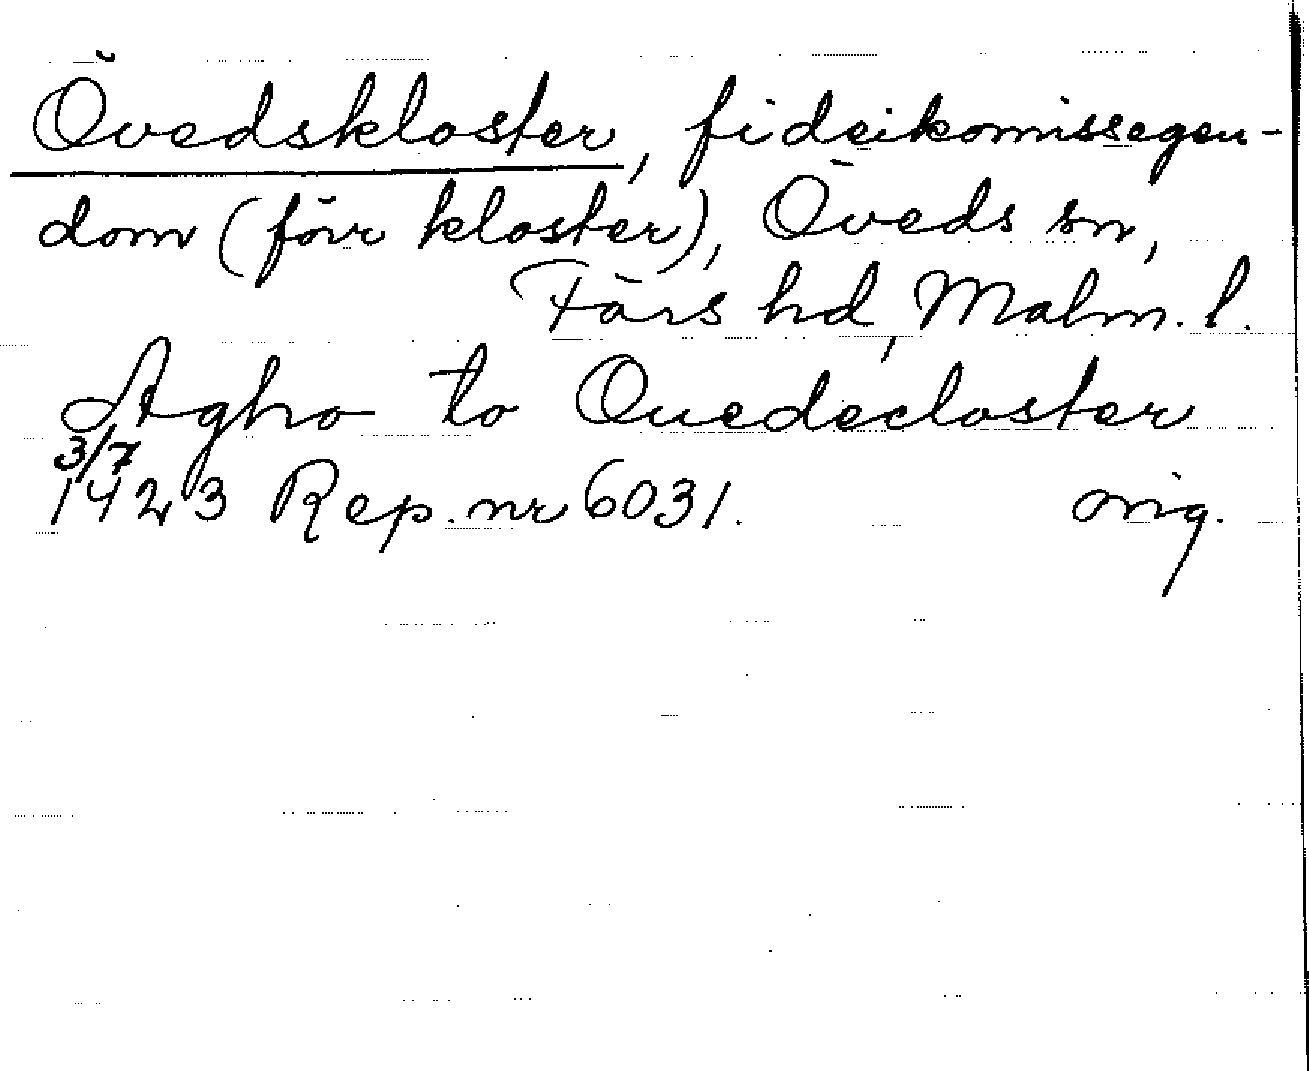 Övedskloster, fideikomissegen-
dom (förr kloster), Öveds sn,
Färs hd, Malm. l.
Agho to Ouedecloster
3/7
1423 Rep. nr 6031. orig.